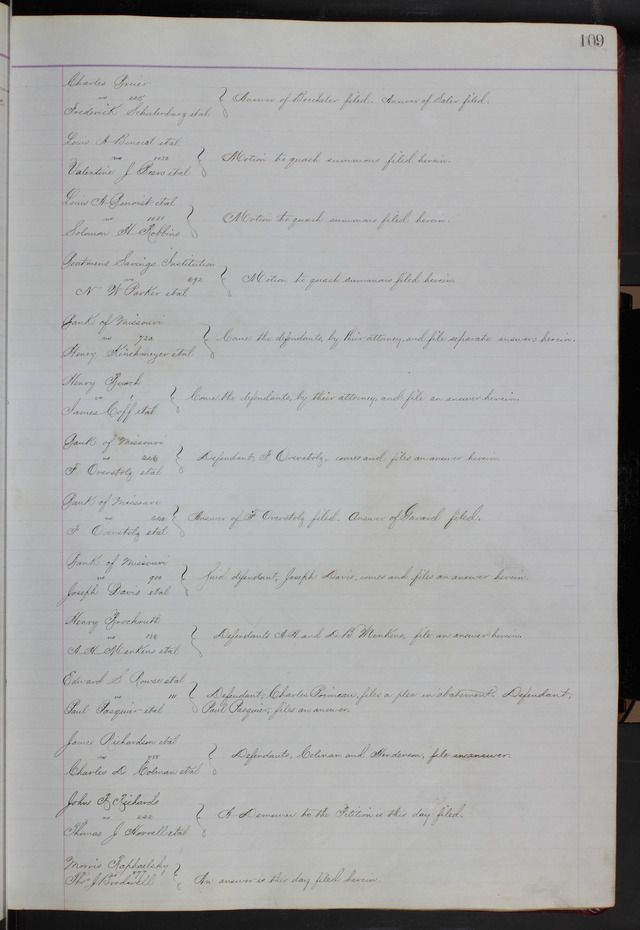 109
Charles Greer
vs
Frederick Schulenburg et al } Answer of Boechster filed. Answer of Sater filed.
Louis A Benoist et al
vs 1052
Valentine J Peers et al } Motion to quash summons filed herein.
Louis A Benoist et al
vs 1051
Solomon H Robbins } Motion to quash summons filed herein.
Boatmens Savings Institution
vs 692
N W Parker et al } Motion to quash summons filed herein.
Bank of Missouri
vs 720
Henry Kirchmeyer et al } Come the defendants, by their attorney, and file separate answers herein.
Henry Busch
vs 1
James Goff et al } Come the defendants, by their attorney, and file an answer herein.
Bank of Missouri
vs
F Overstolz et al } Defendant, F Overstolz, comes and files an answer herein.
Bank of Missouri
vs
F Overstolz et al } Answer of F Overstolz filed. Answer of Gavard filed.
Bank of Missouri
vs 900
Joseph Davis et al } Said defendant, Joseph Davis, comes and files an answer herein.
Henry
vs
A. H. Menkens et al } Defendants A H and D B Menkens, file an answer herein.
Edward S Rowse et al
vs 111
Paul Pasquier et al } Defendant, Charles Primeau, files a plea in abatement. Defendant,
Paul Pasquier, files an answer.
James Richardson et al
vs
Charles D Colman et al } Defendants, Colman and Henderson, file an answer.
John F Richards
vs
Thomas J Horrell et al } A Demurrer to the Petition is this day filed.
Morris Raphaelsky
vs 77
Thos J Bradwell } An answer is this day filed herein.